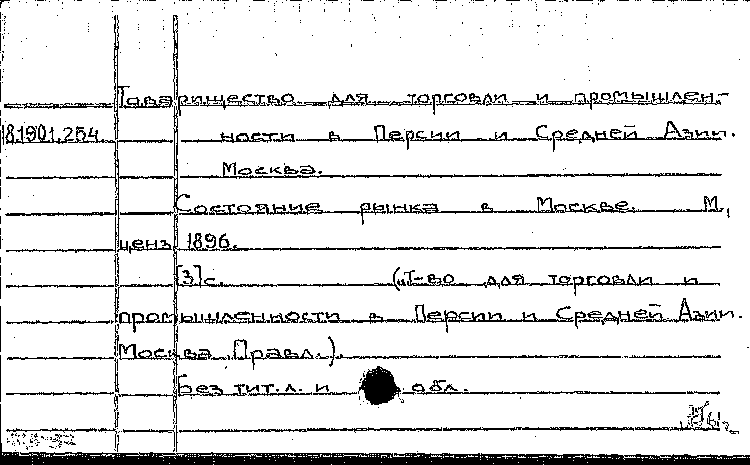 Товарищество для торговли и промышлен-
81901.254 ности в Персии и Средней Азии.
Москва.
Состояние рынка в Москве. М.,
ценз. 1896.
[3]с. („Т-во для торговли и
промышленности в Персии и Средней Азии.
Москва. Правл.).
Без тит.л. и обл.